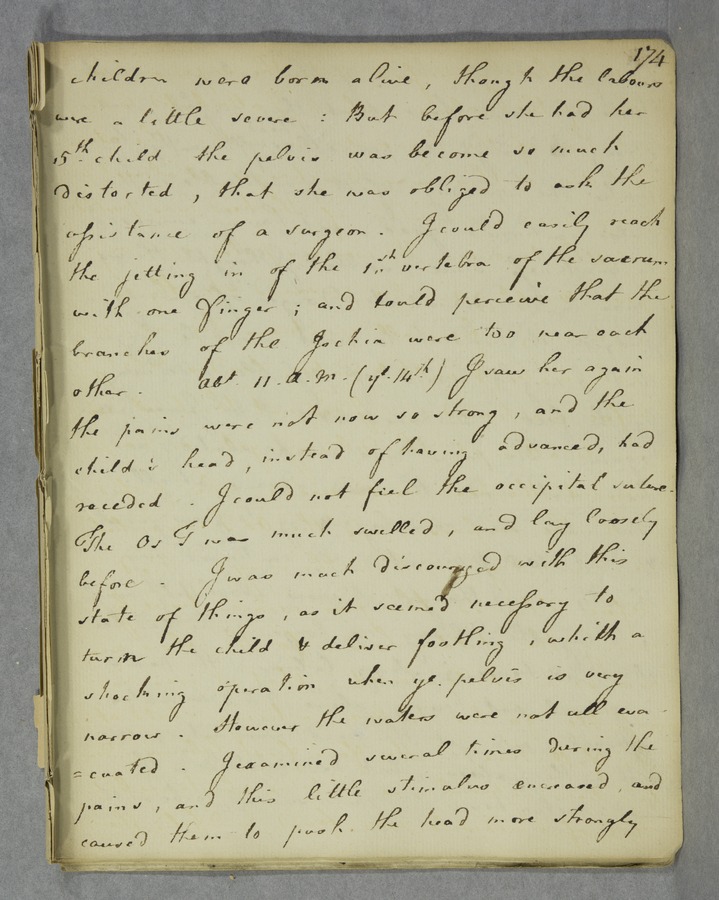 174
children were born alive, though the labours
were a little severe : But before she had her
15th child the pelvis was become so much
distorted, that she was obliged to ask the
assistance of a surgeon. I could easily reach
the jetting in of the 1st vertebra of the sacrum
with one finger ; and could perceive that the
branches of the Ischia were too near each
other. abt 11. a.m. (ye 14th) I saw her again
the pains were not now so strong, and the
child's head, instead of having advanced, had
receded. I could not feel the occipital suture.
The Os T was much swelled, and lay loosely
before. I was much discouraged with this
state of things, as it seemed necessary to
turn the child & deliver footling, which a
shocking operation when ye. pelvis is very
narrow. However the waters were not all eva
=cuated. I examined several times during the
pains, and this little stimulus encreased, and
caused them to push the head more strongly